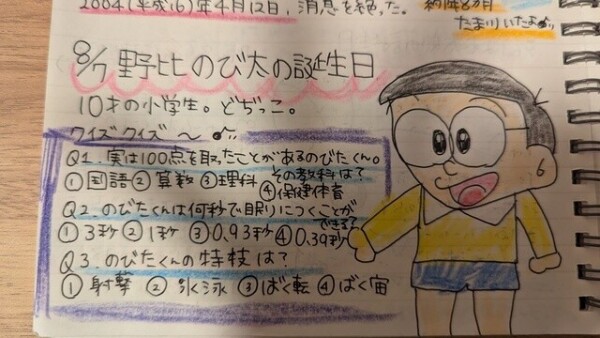 2004(平成16)年4月12日、消息を絶った。
約1年8カ月
たまりいたよ
8/7 野比のび太の誕生日
10才の小学生。どぢっこ。
クイズクイズ〜
Q1.実は100点を取ったことがあるのびたくん。
その教科は?
①国語 ②算数 ③理科 ④保健体育
Q2.のびたくんは何秒で眠りにつくことが
できる?
①3秒 ②1秒 ③0.93秒 ④0.39秒
Q3.のびたくんの特技は?
①射撃 ②水泳 ③ばく転 ④ばく宙